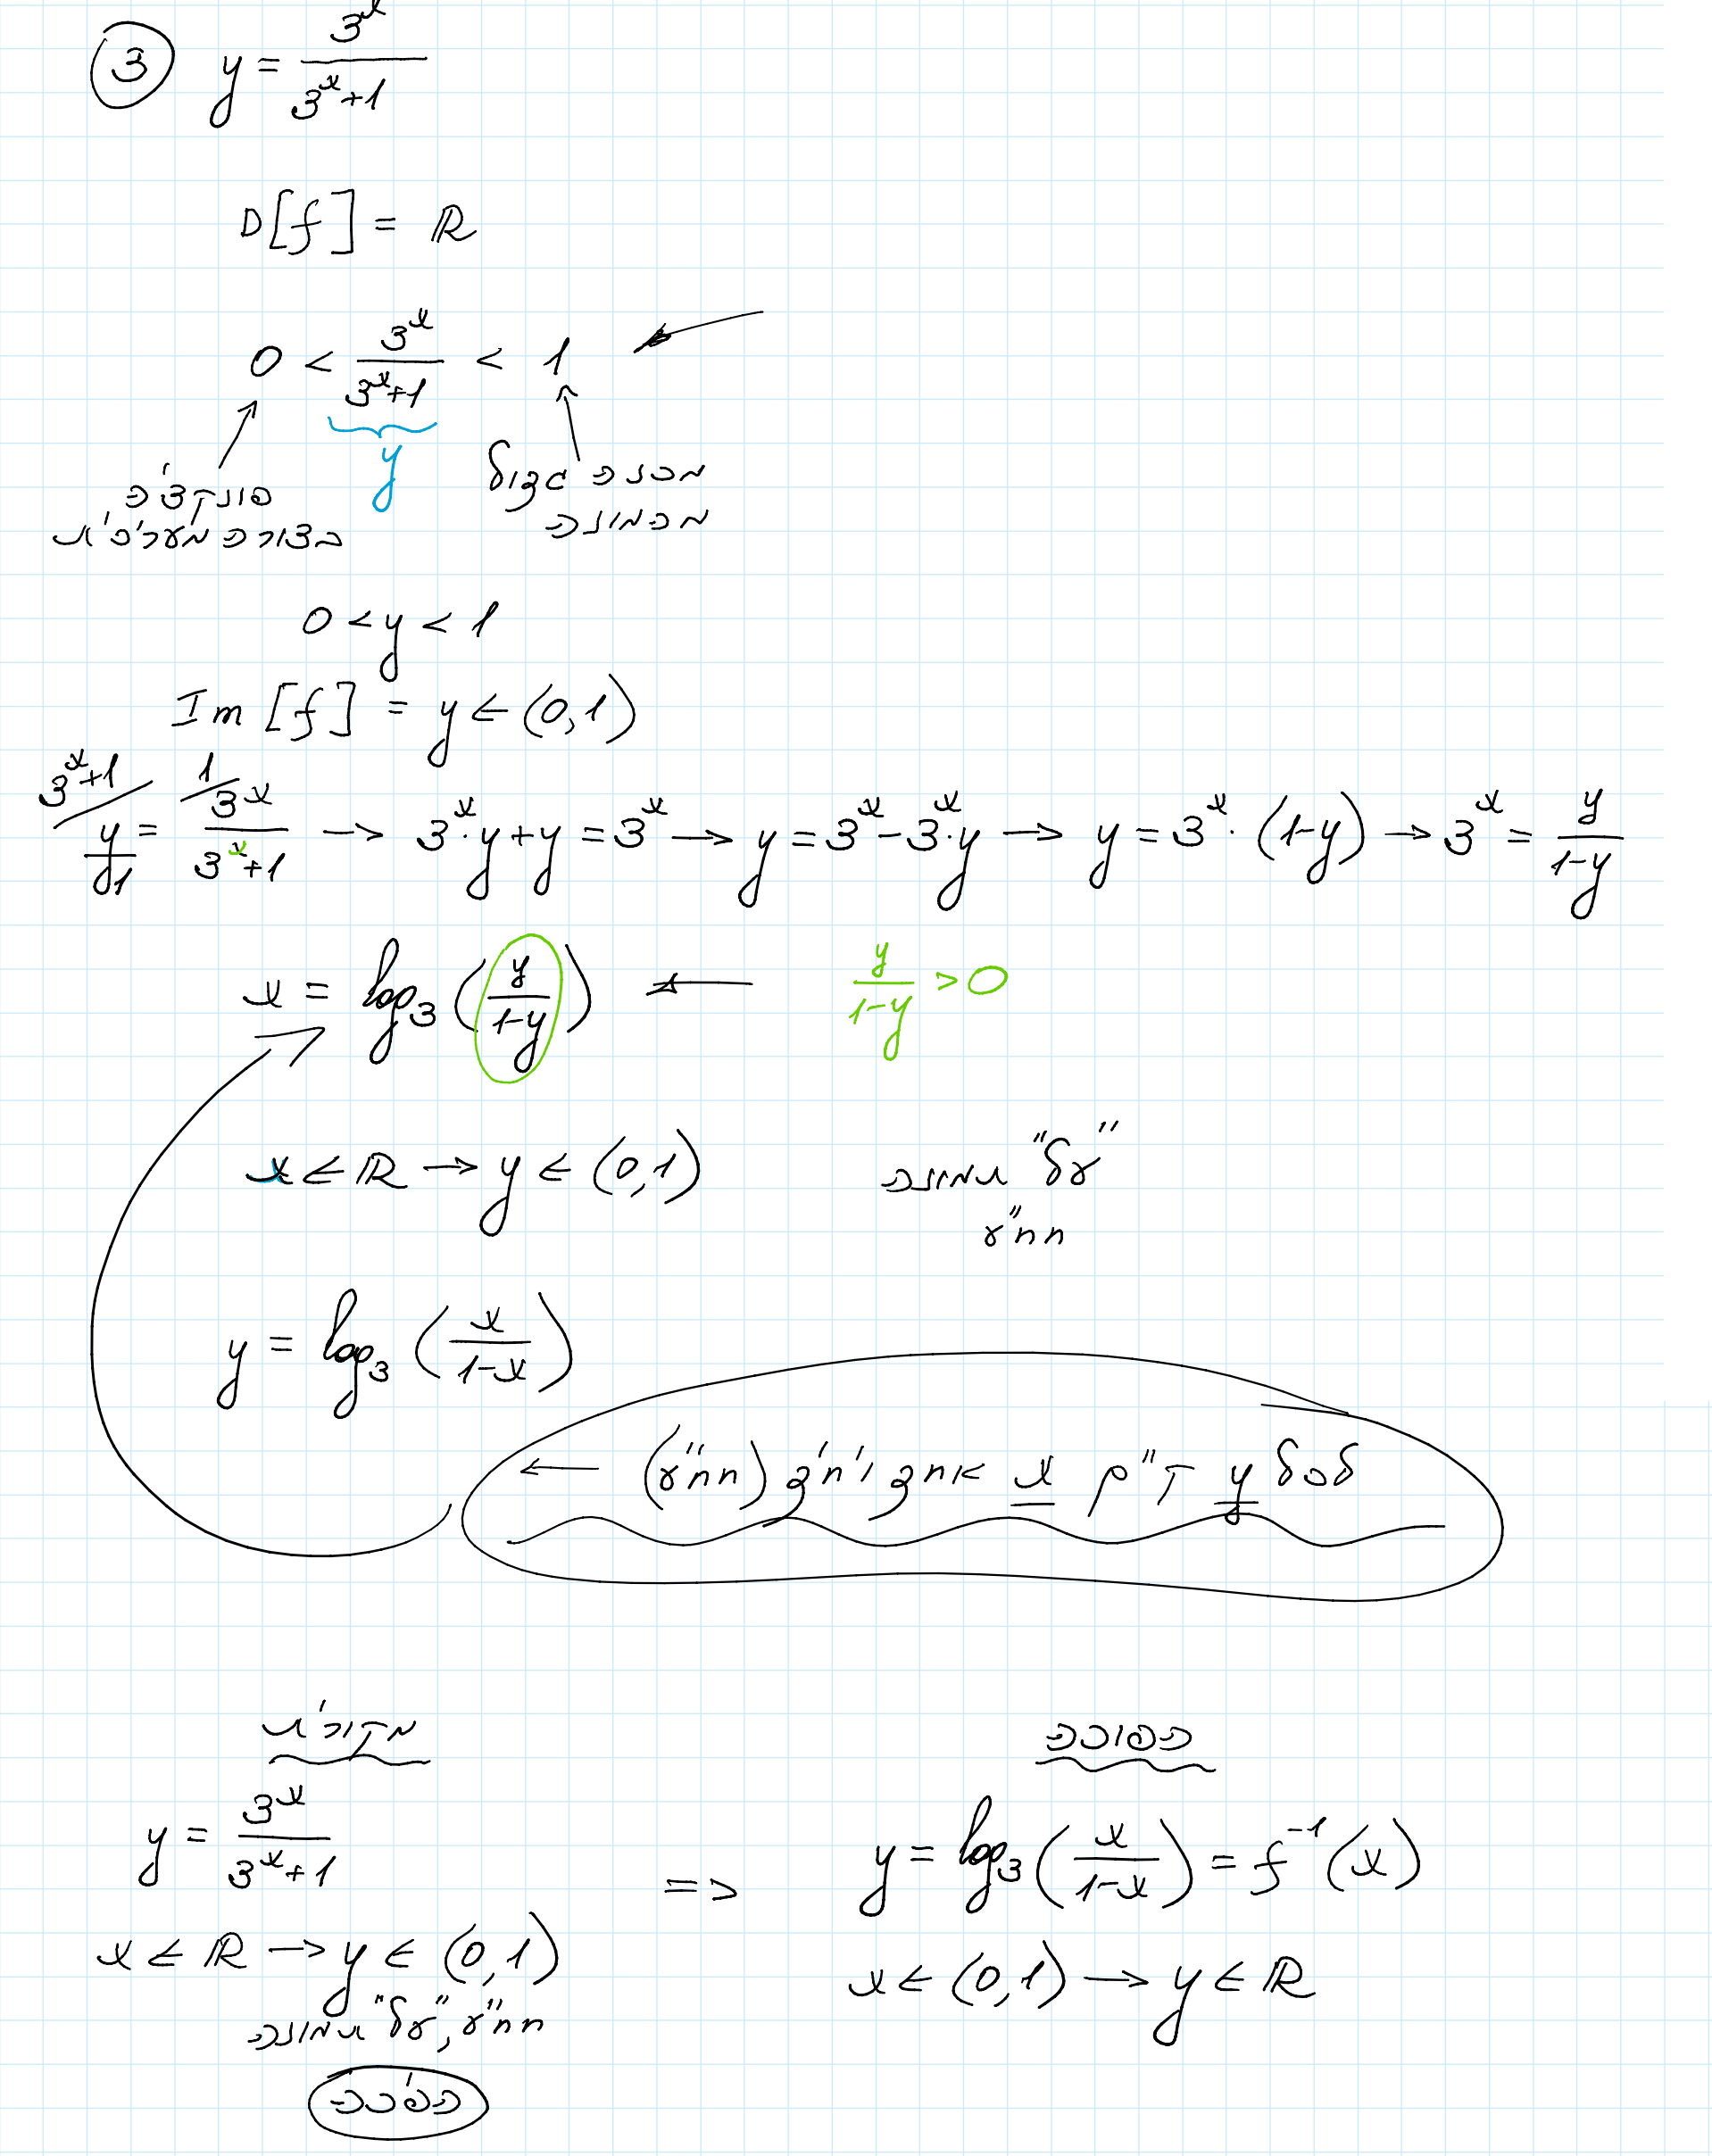 ③ y = 3^x / (3^x+1)
D[f] = ℝ
0 < 3^x / (3^x+1) < 1
y
פונקציה
בצורה מעריכית
מכנה גדול
מהמונה
0 < y < 1
Im [f] = y ∈ (0,1)
3^x+1 / y/1 = 1 / 3^x/(3^x+1) → 3^x·y+y = 3^x → y = 3^x-3^x·y → y = 3^x·(1-y) → 3^x = y/(1-y)
x = log₃(y/(1-y)) ← y/(1-y) > 0
x ∈ ℝ → y ∈ (0,1) "על" תמונה
חח"ע
y = log₃(x/(1-x))
לכל y קיים x אחד ויחיד (חח"ע) ←
מקורית
y = 3^x / (3^x+1)
x ∈ ℝ → y ∈ (0,1)
חח"ע, "על" תמונה
הפיכה
=>
הפוכה
y = log₃(x/(1-x)) = f⁻¹(x)
x ∈ (0,1) → y ∈ ℝ